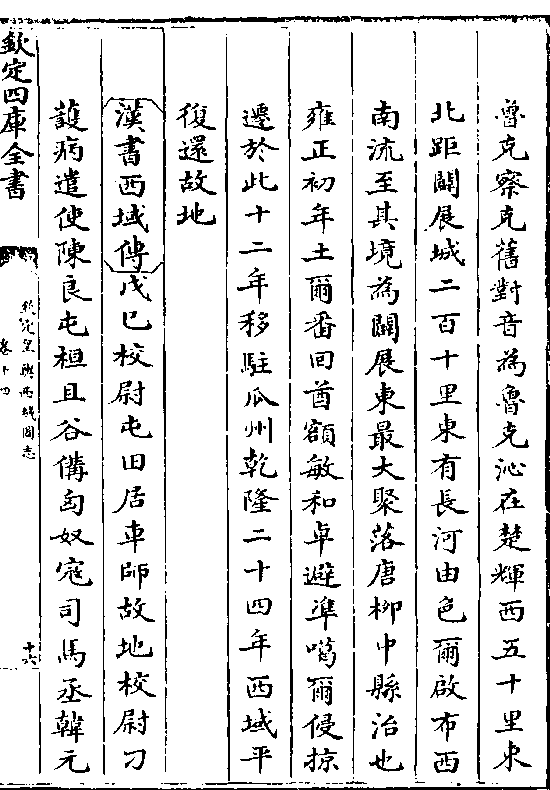 魯克察克舊對音為魯克沁在楚輝西五十里東
北距闢展城二百十里東有長河由色爾啟布西
南流至其境為闢展東最大聚落唐柳中縣治也
雍正初年土爾番回酋額敏和卓避準噶爾侵掠
遷於此十二年移駐瓜州乾隆二十四年西域平
復還故地
漢書西域傳戊己校尉屯田居車師故地校尉刁
護病遣使陳良屯桓且谷備匈奴寇司馬丞韓元
欽定四庫全書
欽定皇輿西域圖志
卷十四
十六